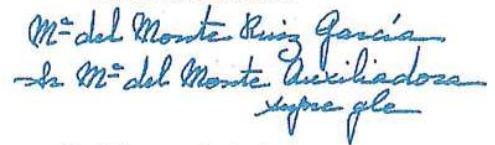 Mª del Monte Ruiz García
Sr Mª del Monte Auxiliadora
supre gle